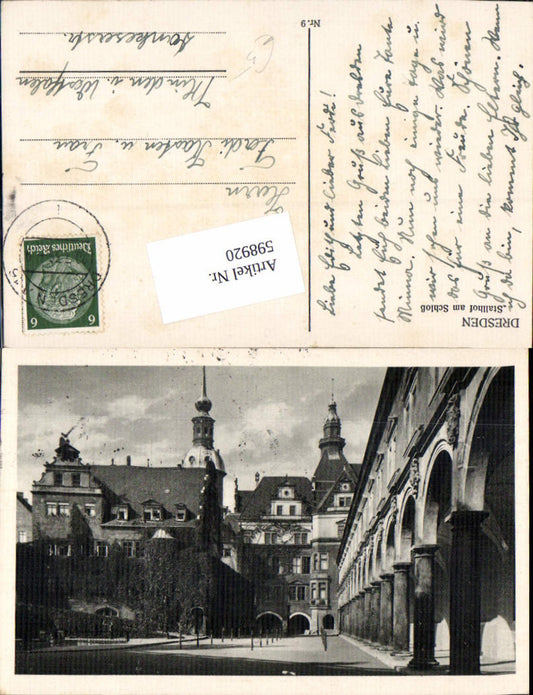 DRESDEN
-Stallhof am Schloß
Liebe Elsa und lieber Ferdi!
Letzten Gruß aus Dresden
sendet Euch beiden lieben Eure Tante
Minna. Nun noch einige Tage u.
wir sehen uns wieder. Das wird
das für eine Freude. Schönen
Gruß an die lieben Eltern. Wenn
ich da bin, kommt Ihr gleich.
Nr. 9
Herrn
Ferdi Kasten u. Frau
Minden i. Westfalen
Deutsches Reich
6 6
DRESDEN
Artikel Nr.
598920